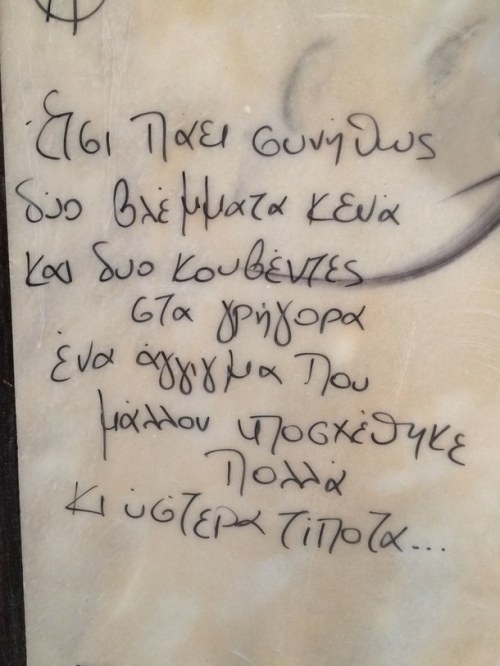 Έτσι πάει συνήθως
δύο βλέμματα κενά
και δυο κουβέντες
στα γρήγορα
ένα άγγιγμα που
μάλλον υποσχέθηκε
πολλά
κι ύστερα τίποτα...